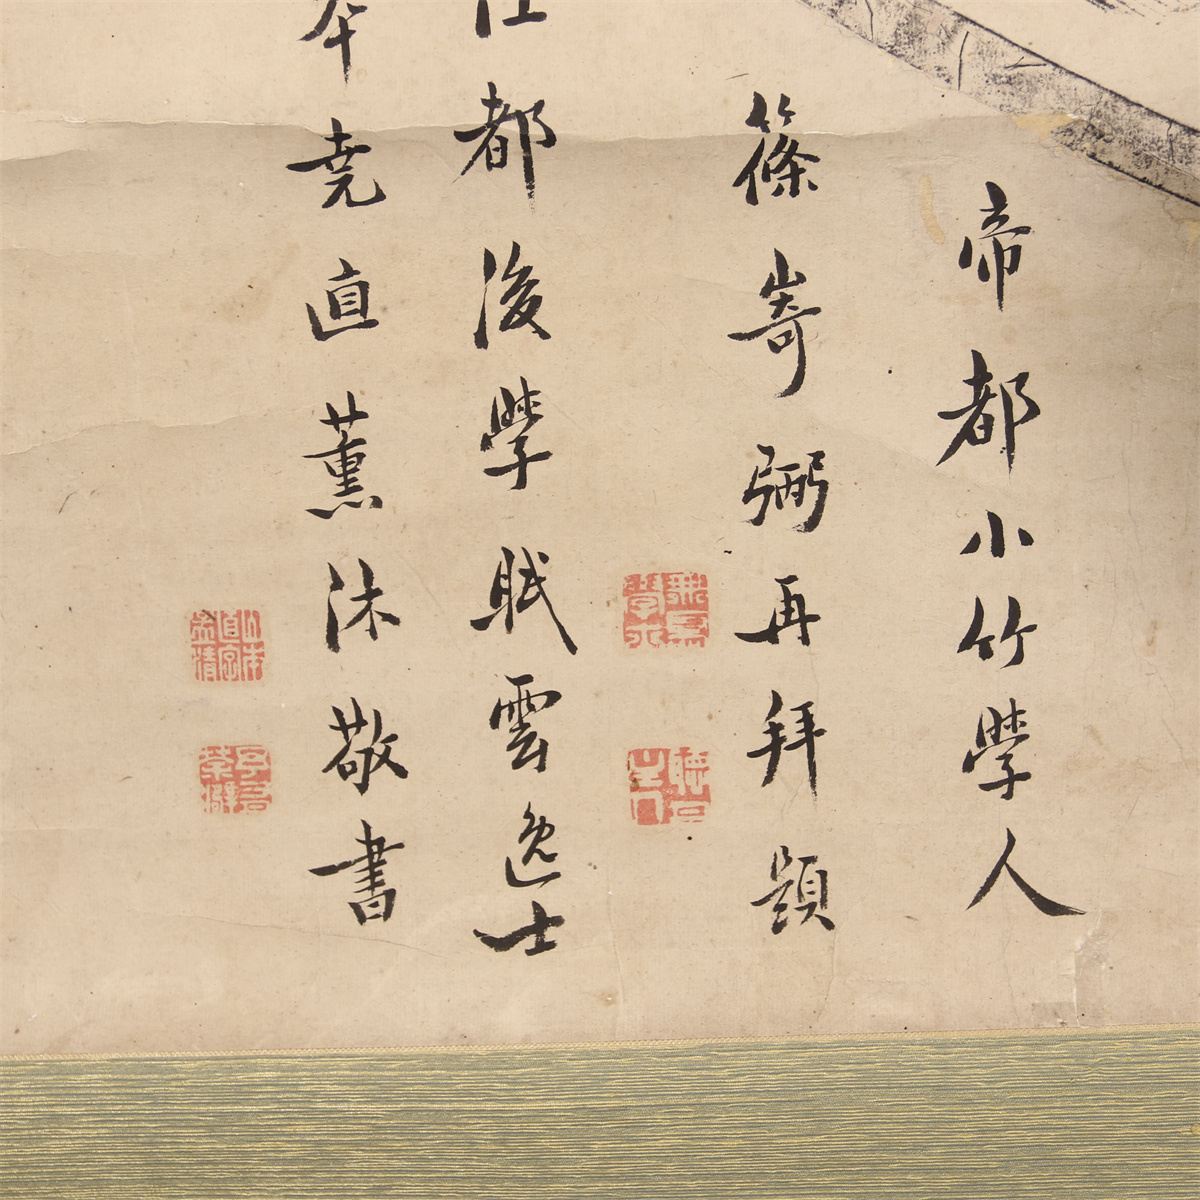 帝都小竹學人
篠嵜弼再拜題
都後學賦雲逸士
本堯直薰沐敬書